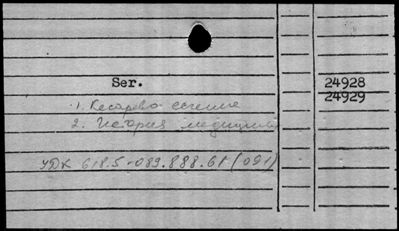 Ser.
24928
24929
1. Кесарево сечение
2. История медицины
УДК 618.5-089.888.61 (091)